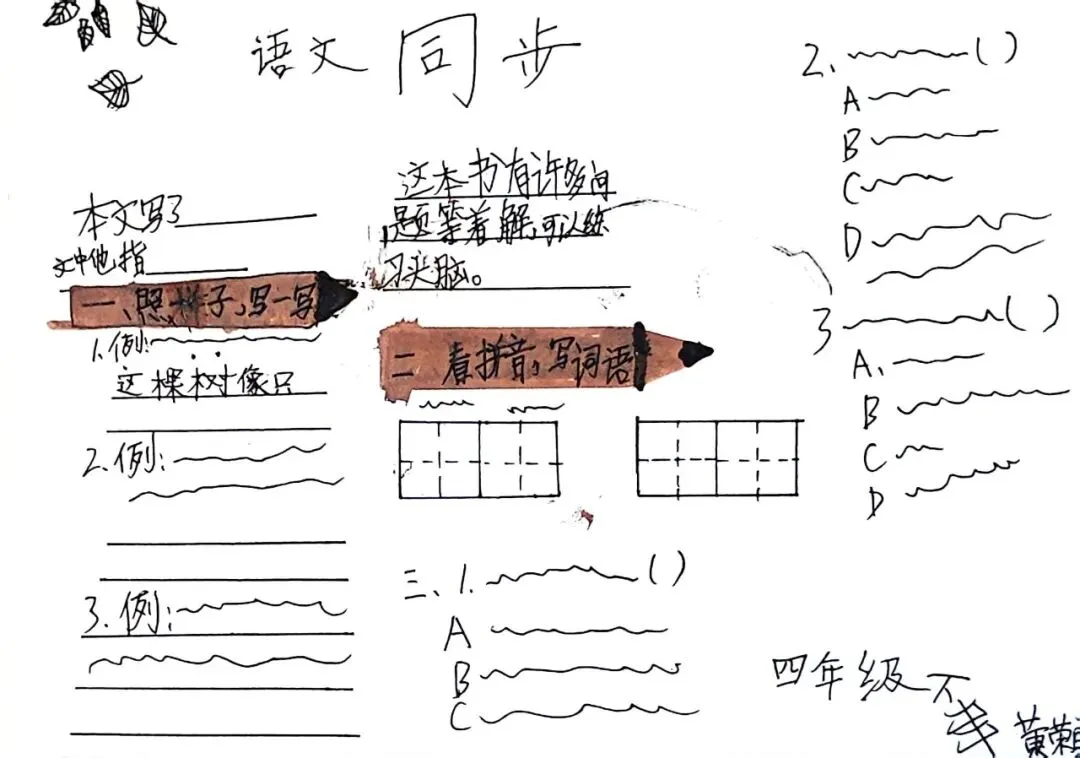 语文同步
本文写了
文中他指
一、照样子,写一写
1.例:
这棵树像只
2.例:
3.例:
这本书有许多问
题等着解,可以练
习头脑。
二 看拼音,写词语
三、1. ( )
A
B
C
2、 ( )
A
B
C
D
3 ( )
A、
B
C
D
四年级
黄荣